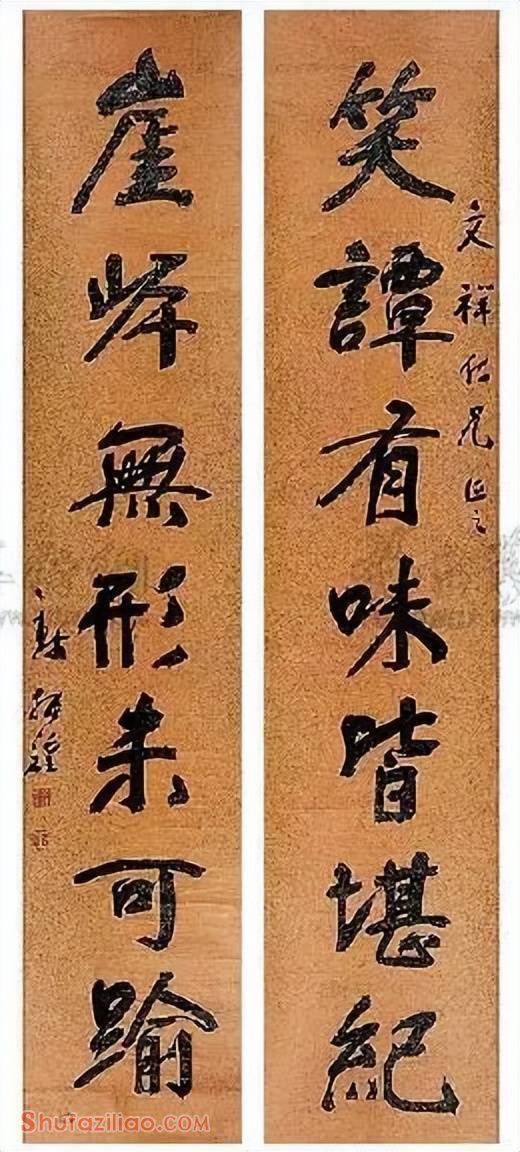 笑譚有味皆堪紀
文祥兄正之
崖岸無形未可踰
Shufaziliao.com